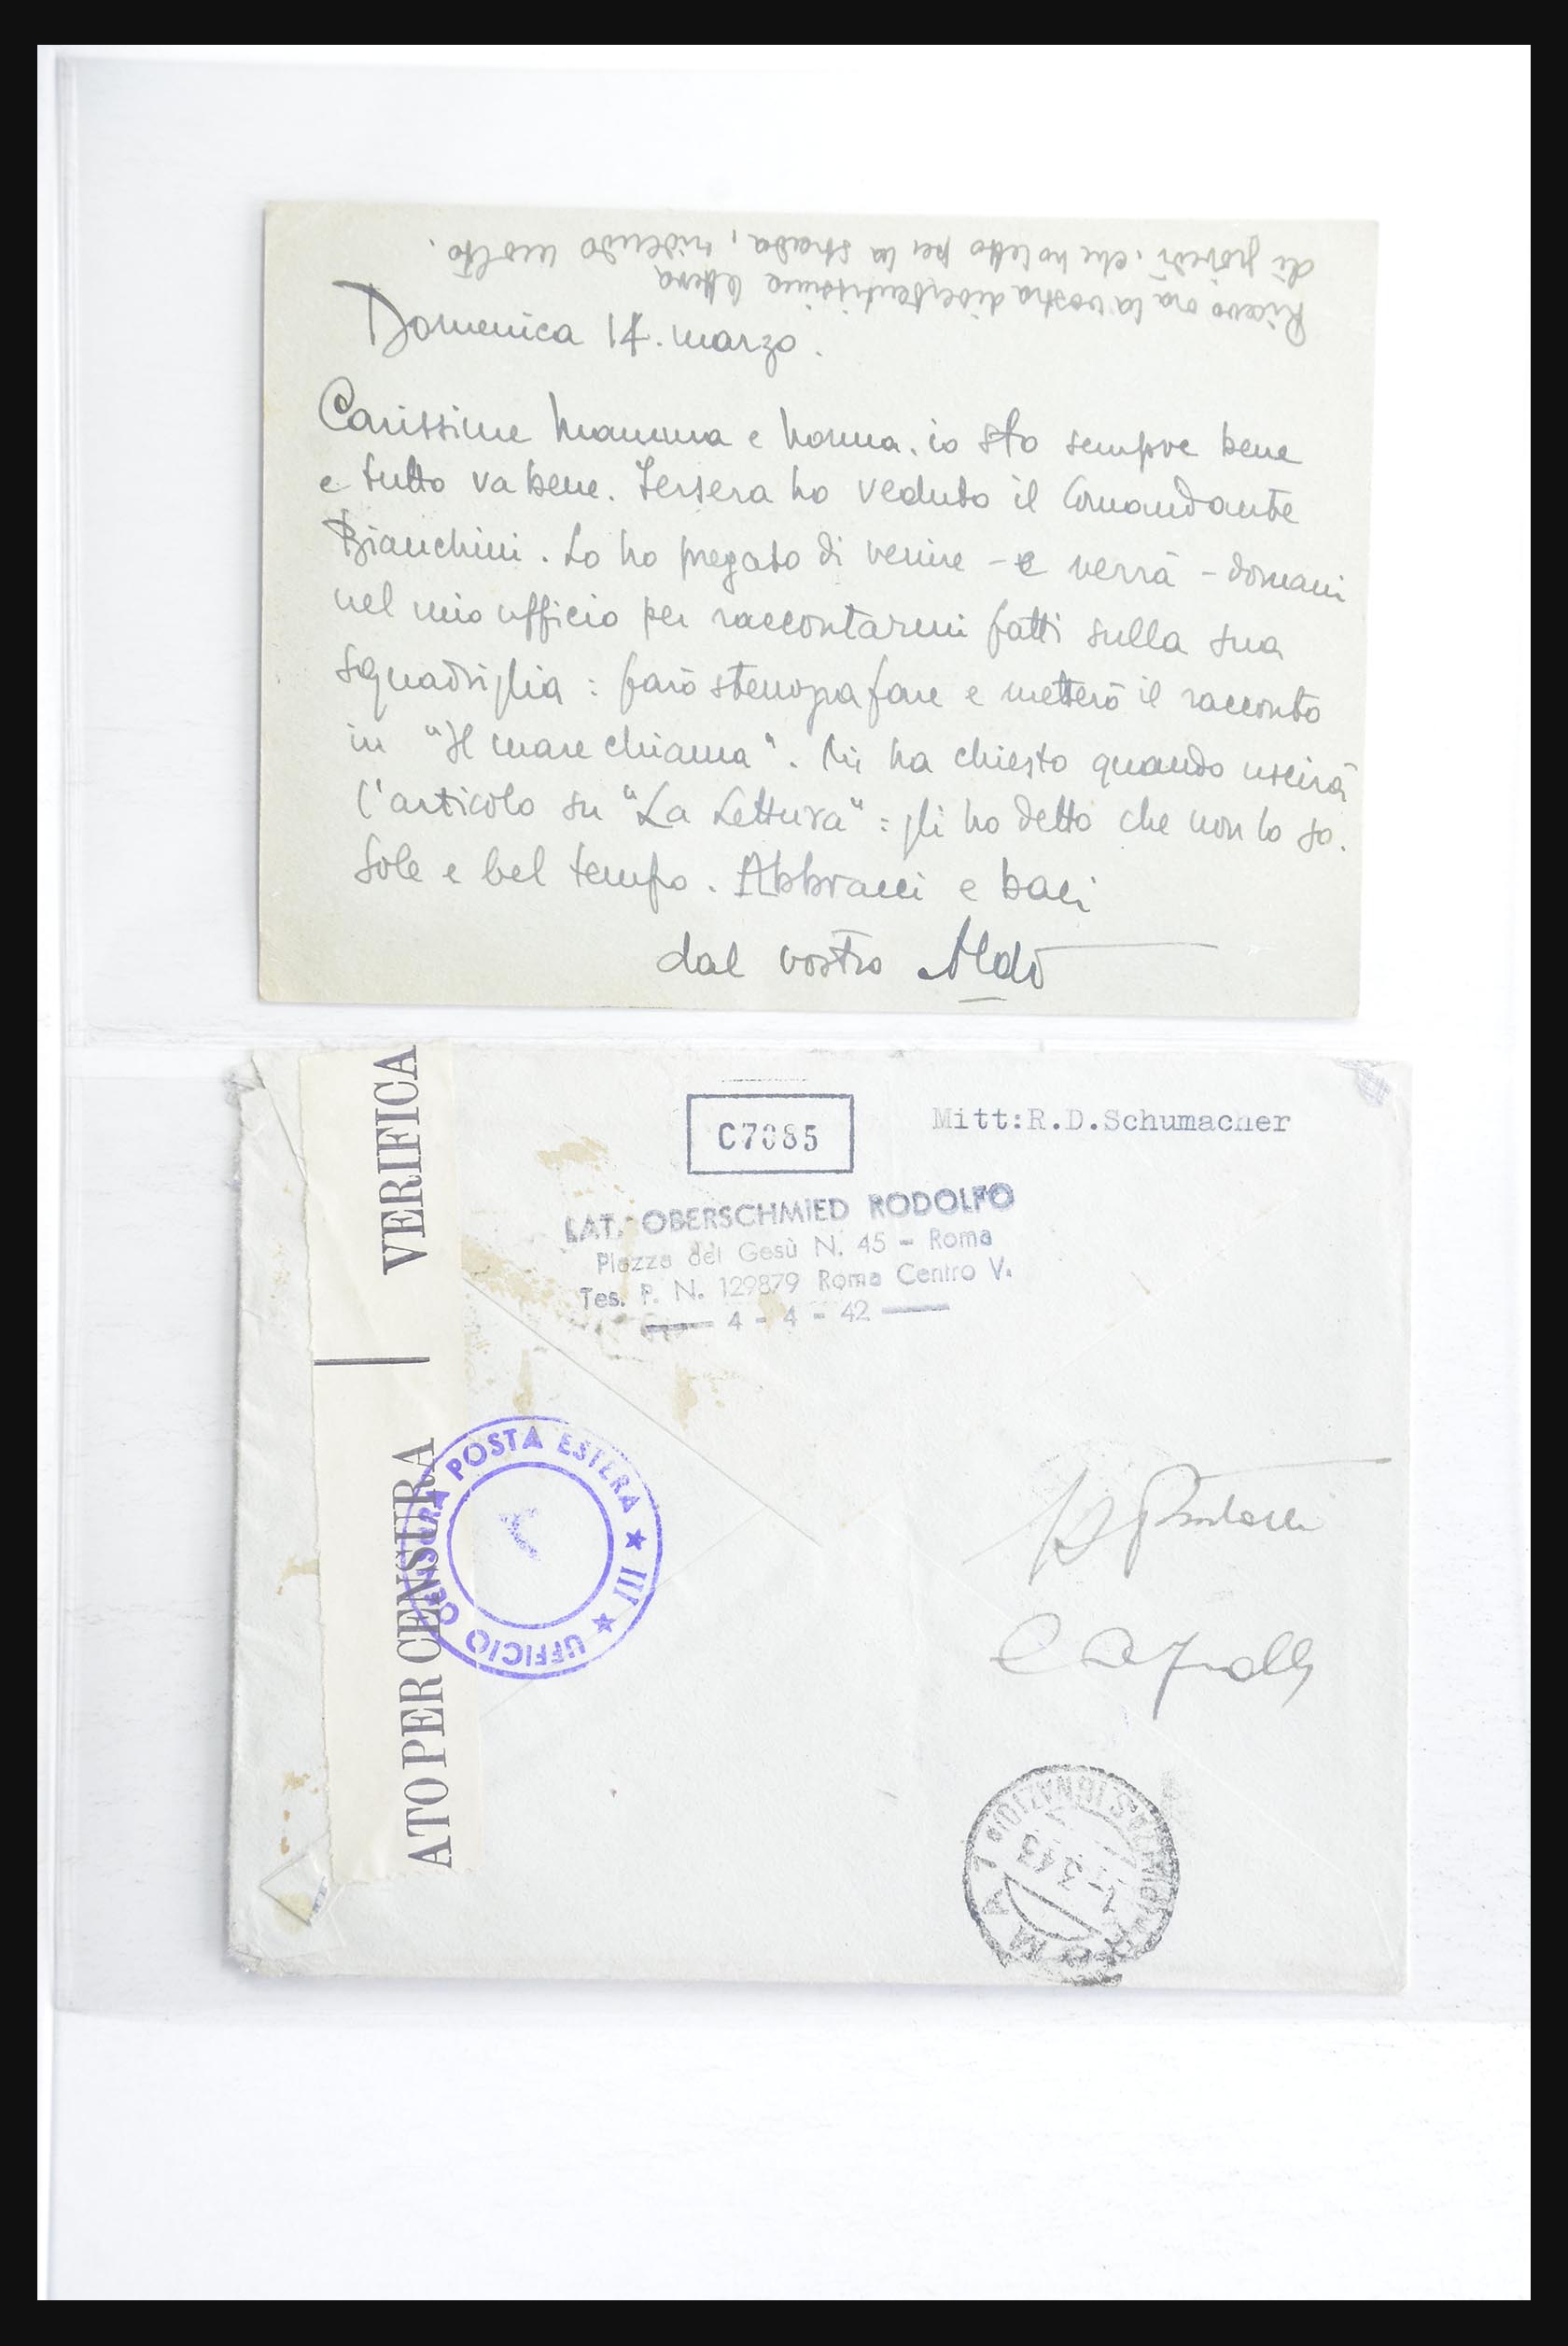 Ricevo ora la vostra divertentissima lettera
di giovedì, che ho letto per la strada, ridendo molto.
Domenica 14. marzo.
Carissime Mamma e Nonna. io sto sempre bene
e tutto va bene. Iersera ho veduto il Comandante
Bianchini. Lo ho pregato di venire - e verrà - domani
nel mio ufficio per raccontarmi fatti sulla sua
squadriglia : farò stenografare e metterò il racconto
in "Il mare chiama". Mi ha chiesto quando uscirà
l'articolo su "La Lettura" : gli ho detto che non lo so.
Sole e bel tempo. Abbracci e baci
dal vostro Aldo
VERIFICA
ATO PER CENSURA
C7085
Mitt:R.D.Schumacher
LAT. OBERSCHMIED RODOLFO
Piazza del Gesù N. 45 - Roma
Tes. P. N. 129879 Roma Centro V.
4 - 4 - 42
UFFICIO CENSURA POSTA ESTERA ★ III ★
ROMA
S. IGNAZIO
3.43